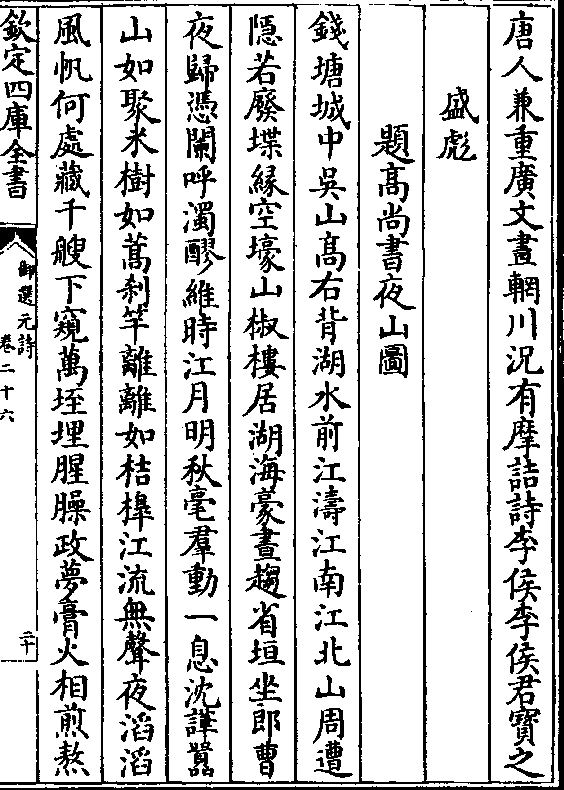 唐人兼重廣文畫輞川況有摩詰詩李侯李侯君寶之
盛彪
題高尚書夜山圖
錢塘城中吳山高右背湖水前江濤江南江北山周遭
隱若廢堞緣空壕山椒樓居湖海豪晝趨省垣坐郎曹
夜歸憑闌呼濁醪維時江月明秋毫羣動一息沈諠囂
山如聚米樹如蒿刹竿離離如桔橰江流無聲夜滔滔
風帆何處藏千艘下窺萬垤埋腥臊政夢膏火相煎熬
欽定四庫全書
御選元詩
卷二十六
二十